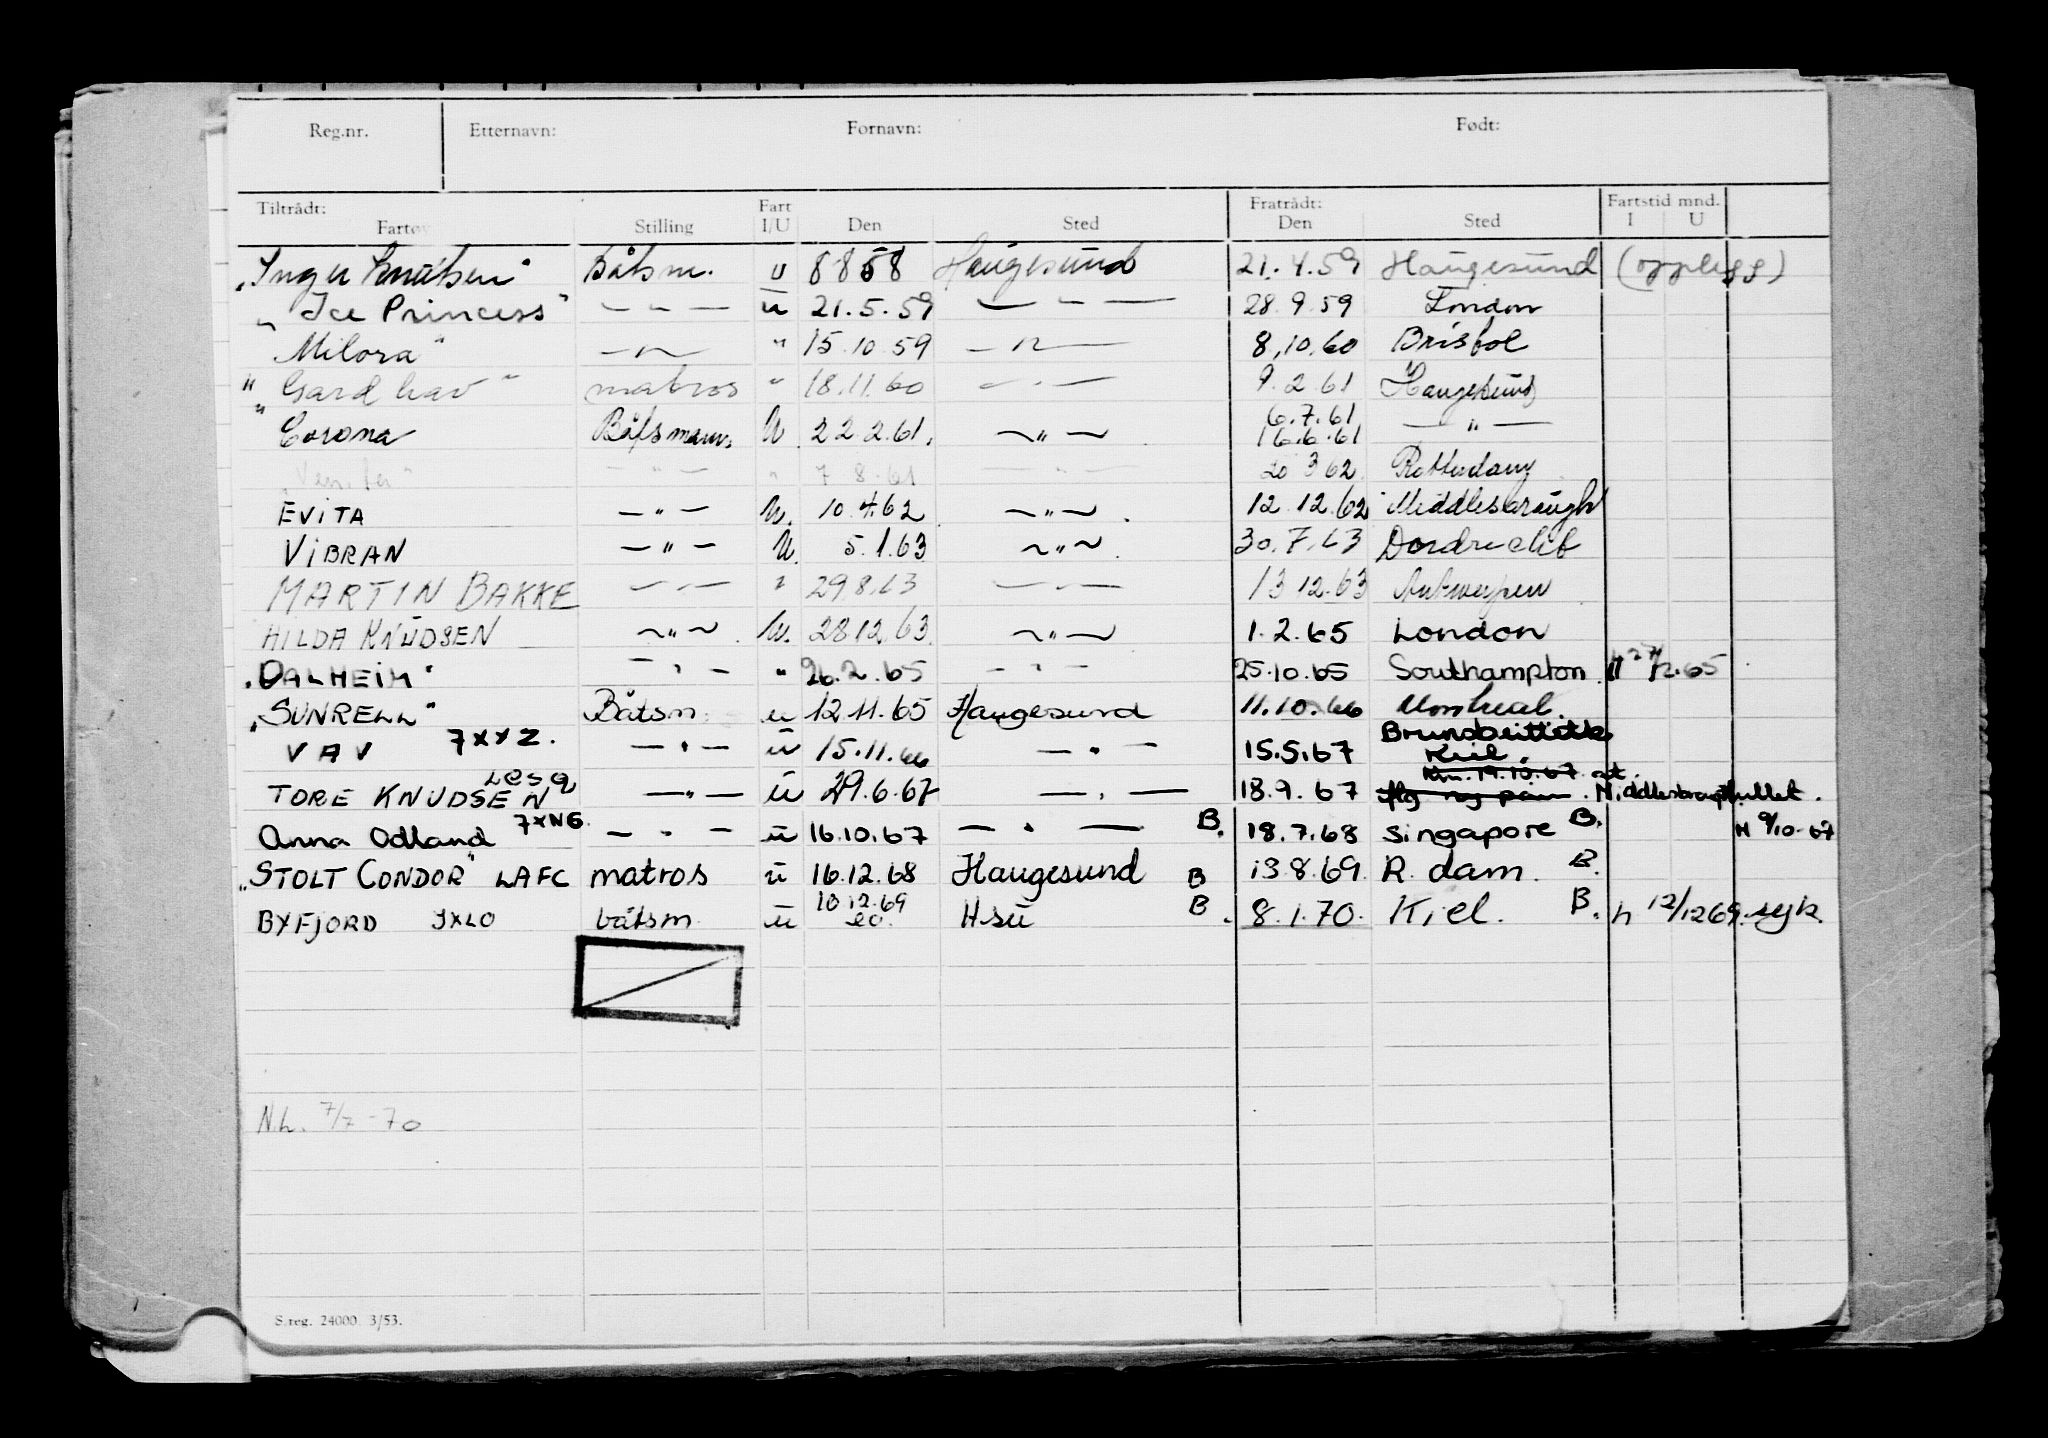 Reg.nr. Etternavn: Fornavn: Født:
Tiltrådt: Fart Fratrådt: Fartstid mnd.
Fartøy Stilling I/U Den Sted Den Sted I U
"Inger Knutsen" Båtsm. u 8 8 58 Haugesund 21.4.59 Haugesund (opplegg)
"Ice Princess" — — — u 21.5.59 — — — 28.9.59 London
Milora" — " — " 15.10.59 — " — 8.10.60 Bristol
"Gard hav" matros " 18.11.60 — " — 9.2.61 Haugesund
6.7.61
" Corona Båtsmann U 22.2.61. — " — 16.6.61 — " —
— " — " 7 8.61 — " — 20 3 62 Rotterdam
EVITA — " — U. 10.4.62 — " — . 12.12.62 Middlesbrough
VIBRAN — " — U. 5.1.63 — " — . 30.7.63 Dordrecht
MARTIN BAKKE — " — " 29.8.63 — " — 13 12.63 Antwerpen
HILDA KNUDSEN — " — . U. 28 12.63. — " — 1.2.65 London
"DALHEIM" — " — " 26.2.65 — " — 25.10.65 Southampton
"SUNRELL" Båtsm. u 12 11.65 Haugesund 11.10.66 Montreal.
VAV 7XYZ. — " — u 15.11.66 — " — 15.5.67
Kiel.
TORE KNUDSEN LCSQ — " — u 29.6.67 — " — 18.9.67
Anna Odland 7XNG. — " — u 16.10.67 — " — B. 18.7.68 Singapore B. H 9/10-67
"STOLT CONDOR" LAFC matros u 16.12.68 Haugesund B 13.8.69. R. dam. B.
10 12.69
BYFJORD JXLO båtsm u 20. Hsu B. 8.1.70. Kiel. B. h 12/1269. syk.
N.L. 7/7-70
S.reg. 24000. 3/53.